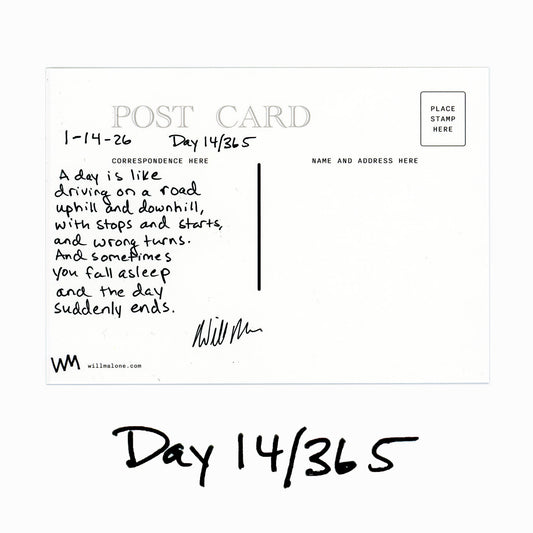 POST CARD
PLACE
STAMP
HERE
1-14-26 Day 14/365
CORRESPONDENCE HERE
NAME AND ADDRESS HERE
A day is like
driving on a road
uphill and downhill,
with stops and starts,
and wrong turns.
And sometimes
you fall asleep
and the day
suddenly ends.
WM willmalone.com
Day 14/365